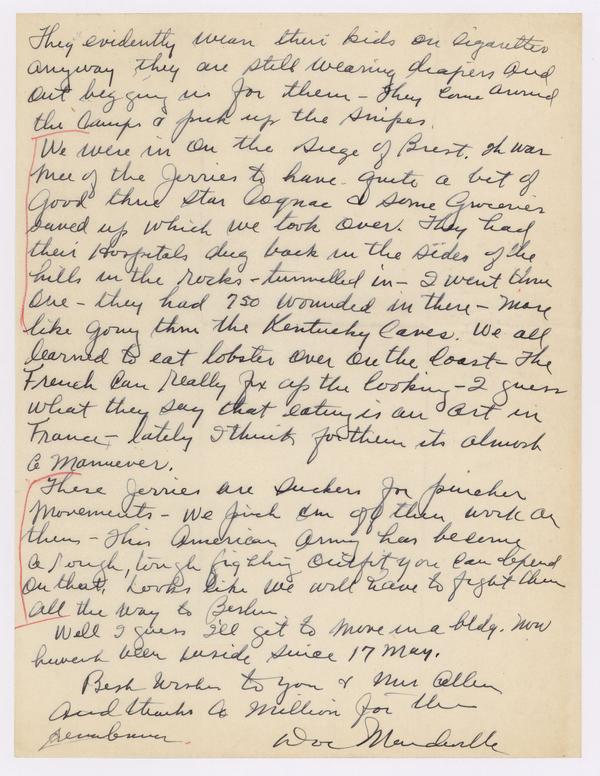 They evidently wean their kids on cigarettes
anyway they are still wearing diapers and
out begging us for them - They come around
the camps & pick up the snipes.
We were in on the siege of Brest. It was
nice of the Jerries to have quite a bit of
Good three star Cognac & some Groceries
saved up which we took over. They had
their Hospitals dug back in the sides of the
hills in the rocks - tunnelled in - I went thru
one - they had 750 wounded in there - more
like going thru the Kentucky Caves. We all
learned to eat lobster over on the Coast - The
French can really fix up the cooking - I guess
what they say that eating is an art in
France - lately I think for them its almost
a Manuever.
These Jerries are suckers for pincher
movements - We pinch em off then work on
them - This American Army has become
a rough, tough fighting outfit you can depend
on that. Looks like we will have to fight them
all the way to Berlin.
Well I guess I'll get to move in a bldg. now
havent been inside since 17 May.
Best Wishes to you & Mrs Allen
and thanks a million for the
remembrance.
Doc Mandeville